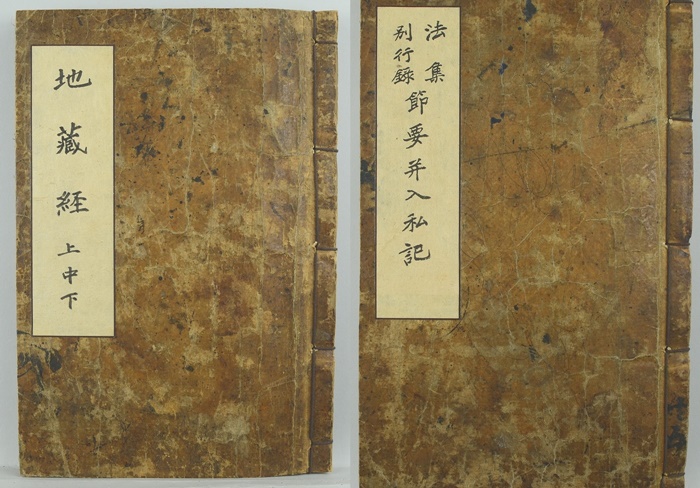 地藏経 上中下
法集
别行錄
節要并入私記